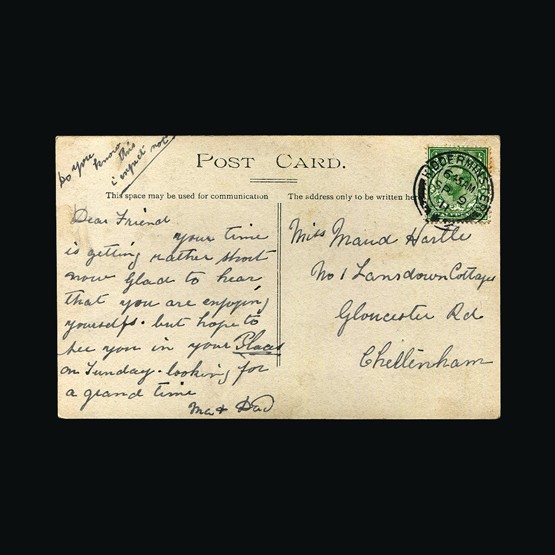 Do you
know
this
i expect not
POST CARD.
This space may be used for communication
The address only to be written here
Dear Friend
your time
is getting rather short
now Glad to hear
that you are enjoying
yourselfs. but hope to
see you in your Places
on Sunday. looking for
a grand time
Ma & Dad
Miss Maud Hartle
No 1 Lansdown Cottages
Gloucester Rd
Cheltenham
KIDDERMINSTER